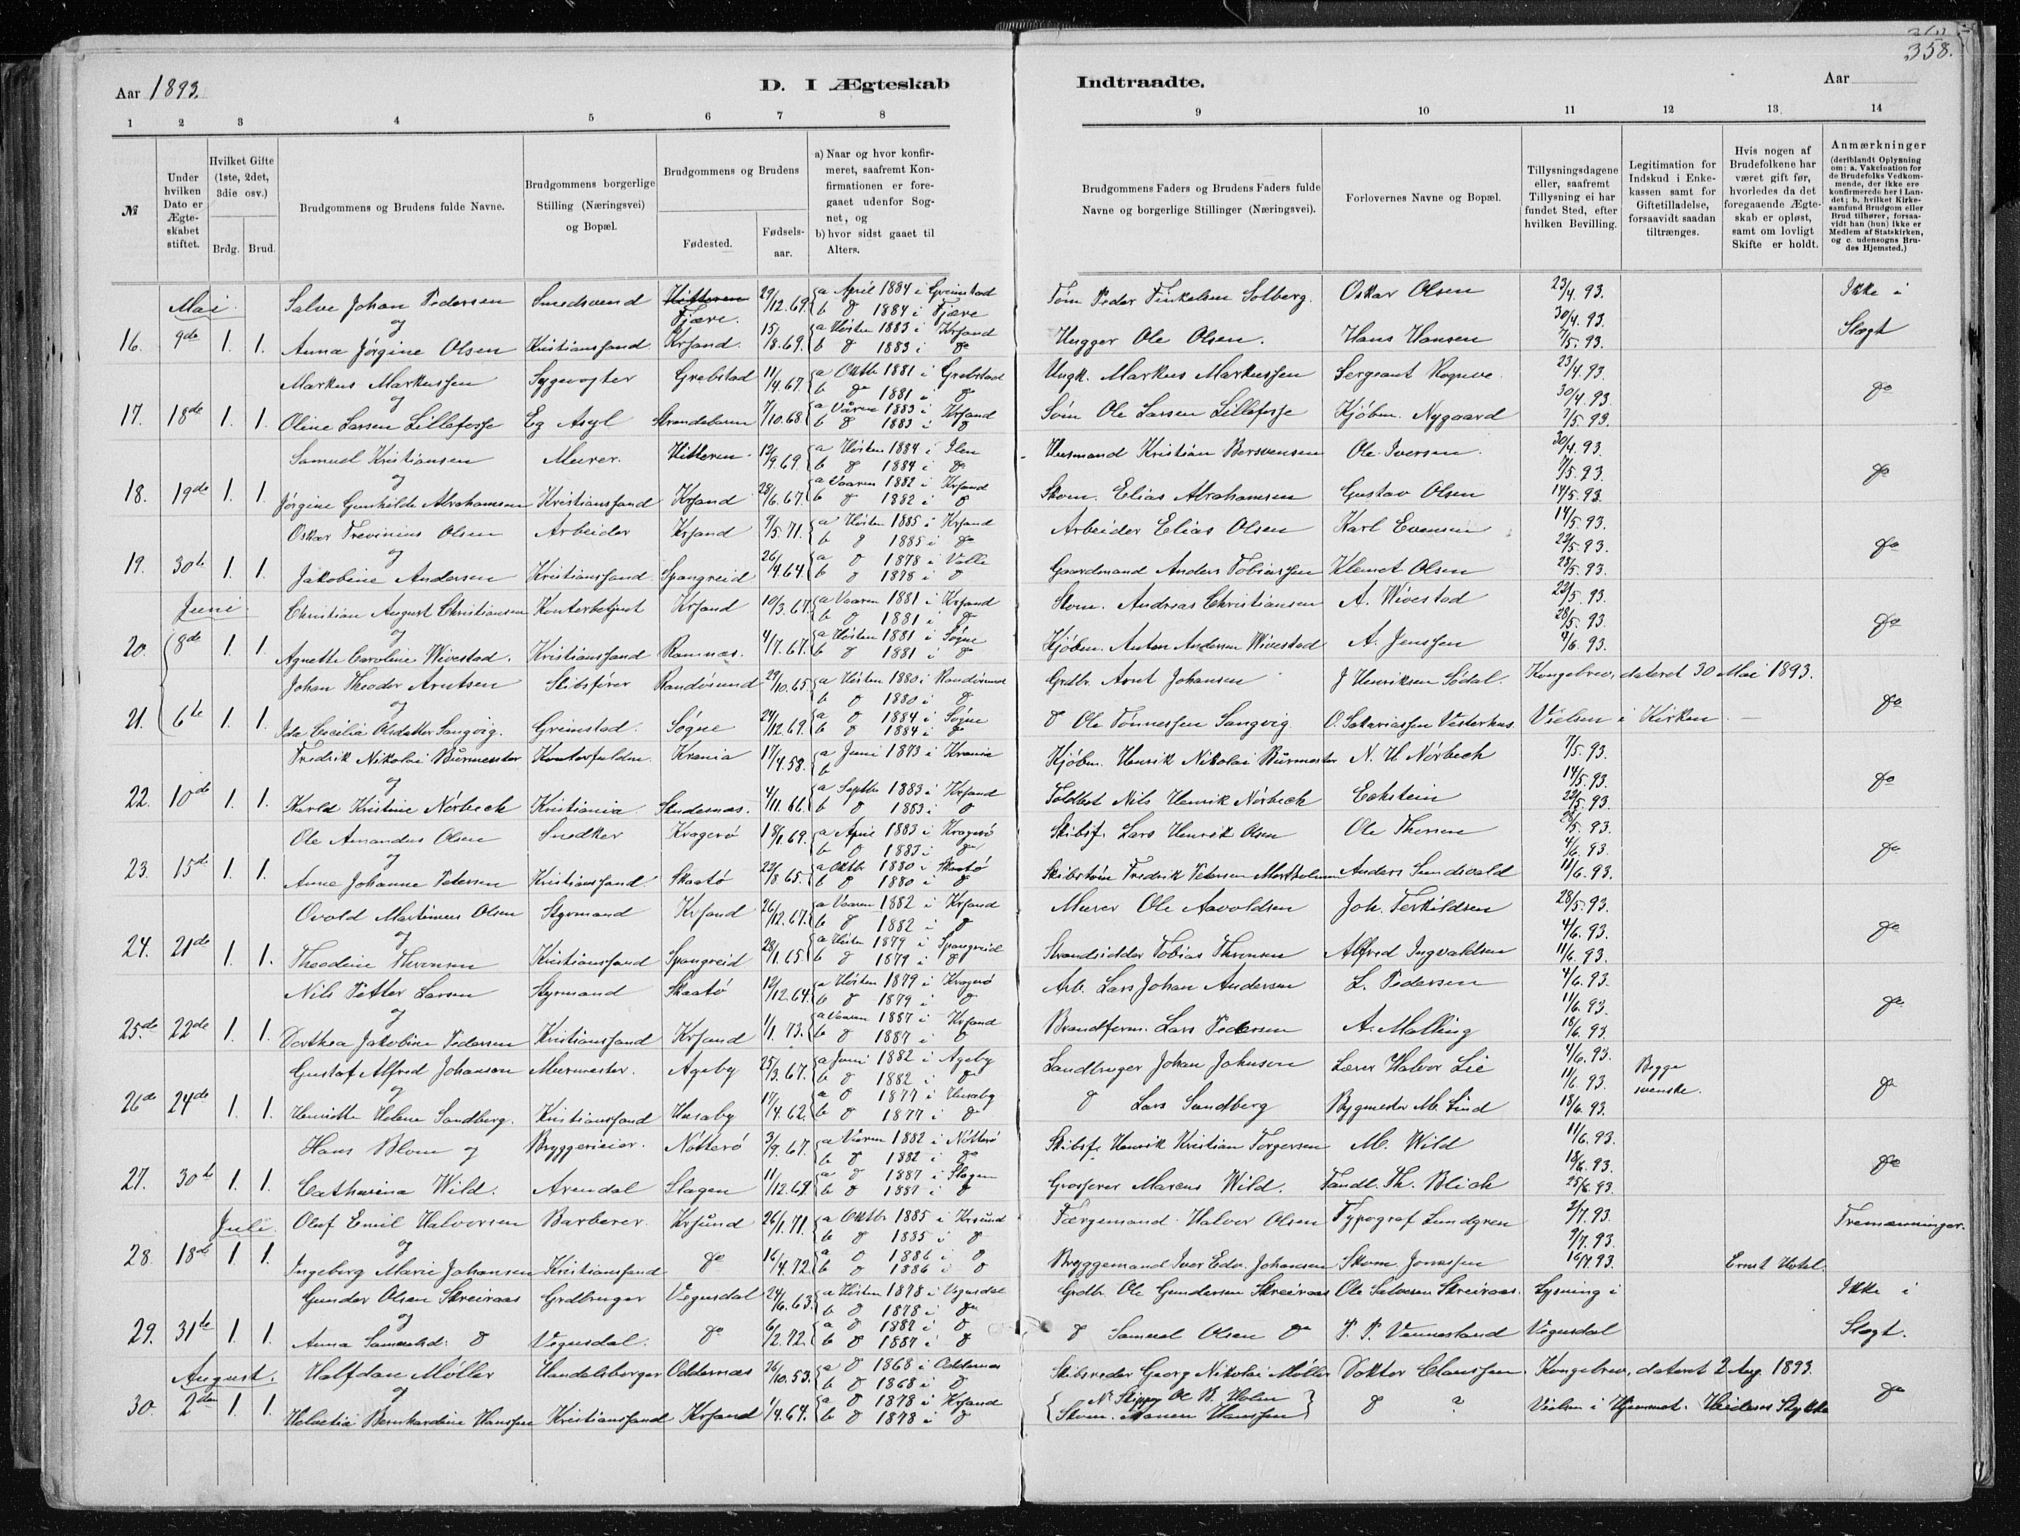 358.
Aar 1893.
D. I Ægteskab Indtraadte.
Aar
1 2 3 4 5 6 7 8 9 10 11 12 13 14
№
Under hvilken Dato er Ægteskabet stiftet.
Hvilket Gifte (1ste, 2det, 3die osv.)
Brdg. Brud.
Brudgommens og Brudens fulde Navne.
Brudgommens borgerlige Stilling (Næringsvei) og Bopæl.
Brudgommens og Brudens
Fødested. Fødselsaar.
a) Naar og hvor konfirmeret, saafremt Konfirmationen er foregaaet udenfor Sognet, og
b) hvor sidst gaaet til Alters.
Brudgommens Faders og Brudens Faders fulde Navne og borgerlige Stillinger (Næringsvei).
Forlovernes Navne og Bopæl.
Tillysningsdagene eller, saafremt Tillysning ei har fundet Sted, efter hvilken Bevilling.
Legitimation for Indskud i Enkekassen samt for Giftetilladelse, forsaavidt saadan tiltrænges.
Hvis nogen af Brudefolkene har været gift før, hvorledes da det foregaaende Ægteskab er opløst, samt om lovligt Skifte er holdt.
Anmærkninger
(deriblandt Oplysning om: a. Vakcination for de Brudefolks Vedkommende, der ikke ere konfirmerede her i Landet; b. hvilket Kirkesamfund Brudgom eller Brud tilhører, forsaavidt han (hun) ikke er Medlem af Statskirken, og c. udensogns Brudes Hjemsted.)
Mai. Salve Johan Pedersen Smedsvend Hitteren Fjære. 29/12.69. a April 1884 i Grimstad b d 1884 i Fjære Tøm Peder Finkelsen Solberg. Oskar Olsen 23/4.93. Ikke i
og 30/4.93.
16. 9de 1. 1. Anna Jørgine Olsen Kristianssand. Krsand. 15/8.69. a Høsten 1883 i Krsand b d 1883 i do Ole Olsen. Hans Hansen 7/5.93. Slægt
Markus Markussen Sygevogter Grebstad 11/4.67. a Oktbr 1881 i Grebstad b do 1881 i d Ungk. Markus Markussen Sergeant 23/4.93.
og 30/4.93. do
17. 18de 1. 1. Oline Larsen Lillefosse Eg Asyl Strandebarm 7/10.68. a Våren 1883 i Krsand b d 1883 i d Tøm Ole Larsen Lillefosse Kjøbm. Nygaard 7/5.93.
Samuel Kristiansen Murer. Hitteren. 13/9.69. a Høsten 1884 i Ilen b d 1884 i do Husmand Kristian Bersvensen Ole Iversen. 30/4.93.
og 7/5.93. do
18. 19de 1. 1. Jørgine Gunhilde Abrahamsen Kristianssand Krsand 28/6.67. a Vaaren 1882 i Krsand b d 1882 i d Skom. Elias Abrahamsen Gustav Olsen 14/5.93.
Oskar Trevinius Olsen Arbeider Krsand 7/5.71. a Høsten 1885 i Krsand b d 1885 i do Arbeider Elias Olsen Karl Evensen 14/5.93.
og 22/5.93. do
19. 30te 1. 1. Jakobine Andersen Kristianssand. Spangreid 26/4.64. a d 1878 i Valle b d 1878 i d Gaardmand Anders Tobiassen Klemet Olsen 28/5.93.
Juni. Christian August Christiansen Kontorbetjent Krsand 10/3.67. a Vaaren 1881 i Krsand b d 1881 i do Skom. Andreas Christiansen A. Wivestad 22/5.93.
og 28/5.93. do
20. 8de 1. 1. Agnette Caroline Wivestad. Kristianssand 4/7.67. a Høsten 1881 i Søgne b d 1881 i do Kjøbm. Anton Andersen Wivestad A. Jenssen 4/6.93.
Johan Theodor Arntsen Skibsfører Randøsund 29/10.65. a Høsten 1880 i Randøsund b d 1880 i d Grdbr. Arnt Johansen J Henriksen Sødal. Kongebrev, dateret 30 Mai 1893.
og do
21. 6te 1. 1. Ida Cecilia Olsdatter Sangvig. Grimstad. Søgne 24/12.69. a d 1884 i Søgne b d 1884 i do d Ole Tønnessen Sangvig O. Sakariassen Vesterhus. Vielsen i Kirken
Fredrik Nikolai Bürmester Krania 17/4.58. a Juni 1873 i Krania b Kjøbm. Henrik Nikolai Bürmester N. H Nørbech 7/5.93.
og 14/5.93. do
22. 10de 1. 1. Kristine Nørbeck Kristiania 4/11.66. a Septbr 1883 i Krsand b d 1883 i d Toldbet Nils Henrik Nørbeck Eckstein 22/5.93.
Ole Amandus Olsen Snedker Kragerø 18/1.69. a April 1883 i Kragerø b d 1883 i do Skibsf. Lars Henrik Olsen Ole 28/5.93.
og 4/6.93. do
23. 15de 1. 1. Anne Johanne Petersen Kristianssand. Skaatø 22/8.65. a Oktbr 1880 i Skaatø b d 1880 i d Skibstøm Fredrik Petersen Anders Sundsvald 11/6.93.
Ovold Martinius Olsen Styrmand Krsand 26/12.67. a Vaaren 1882 i Krsand b d 1882 i d Murer Ole Aavoldsen Joh. Terkildsen 28/5.93.
og 4/6.93. do
24. 21de 1. 1. Theodine Thronsen Kristianssand Spangreid 28/1.65. a Høsten 1879 i Spangreid b d 1879 i d Strandsidder Tobias Thronsen Alfred Ingvaldsen 11/6.93.
Nils Petter Larsen Styrmand Skaatø 10/12.64. a Høsten 1879 i Kragerø b d 1879 i d Arb. Lars Johan Andersen L. Pedersen 4/6.93.
og 11/6.93. do
25de 22de 1. 1. Dorthea Jakobine Pedersen Kristianssand Krsand 1/1.73. a Vaaren 1887 i Krsand b d 1887 i d Brandform. Lars Pedersen A. Malling 18/6.93.
Gustaf Alfred Johanson Murmester. Ageby 25/3.67. a Juni 1882 i Ageby b d 1882 i do Landbruger Johan Johnson Lærer Halvor Lie 4/6.93. Begge
og 11/6.93. svenske. d
26de 24de 1. 1. Henriette Helene Sandberg. Kristianssand Husaby 17/4.62. a d 1877 i Husaby b d 1877 i do d Lars Sandberg Bygmester M. Lind 18/6.93.
Hans Blom og Bryggerieier. Nøtterø 3/9.67. a Våren 1882 i Nøtterø b d 1882 i do Skibsf. Henrik Kristian Torgersen M. Wild 11/6.93.
18/6.93. do
27. 30te 1. 1. Catharina Wild. Arendal Slagen 11/12.69. a d 1887 i Slagen b d 1887 i d Grosserer Marcus Wild. Tandl. Th. Blich 25/6.93.
Juli. Olaf Emil Halvorsen Barberer. Krsund 26/1.71. a Oktbr 1885 i Krsund b d 1885 i d Færgemand Halvor Olsen Typograf Lundgren 2/7.93. Tremænninger.
og 9/7.93.
28. 18de 1. 1. Ingeborg Marie Johansen Kristianssand do 16/4.72. a d 1886 i d b d 1886 i d Bryggemand Iver Edv. Johansen Skom. Jonassen 16/7.93. Ernst Hotel.
Gunder Olsen Skreiraas Grdbruger Vegusdal 24/6.63. a Høsten 1878 i Vegusdal b d 1878 i do Grdbr. Ole Gundersen Skreiraas Ole Salvesen Skreiraas. Lysning i Ikke i
og
29. 31te 1. 1. Anna d Vegusdal. do 6/2.72. a d 1887 i d b d 1887 i d d Samuel Olsen do P. P. Vennesland Vegusdal Slægt.
August. Halfdan Møller Handelsborger Oddernæs 26/10.53. a d 1868 i Oddernæs b d 1868 i d Skibsreder Georg Nikolai Møller Doktor Claussen. Kongebrev, dateret 2 Aug. 1893.
og do
30. 2den 1. 1. Helvetia Bernhardine Hanssen Kristianssand Krsand 1/4.64. a d 1878 i Krsand b d 1878 i d Ole B. Holm Skom. Hanssen d ? Vielsen i Hjemmet.